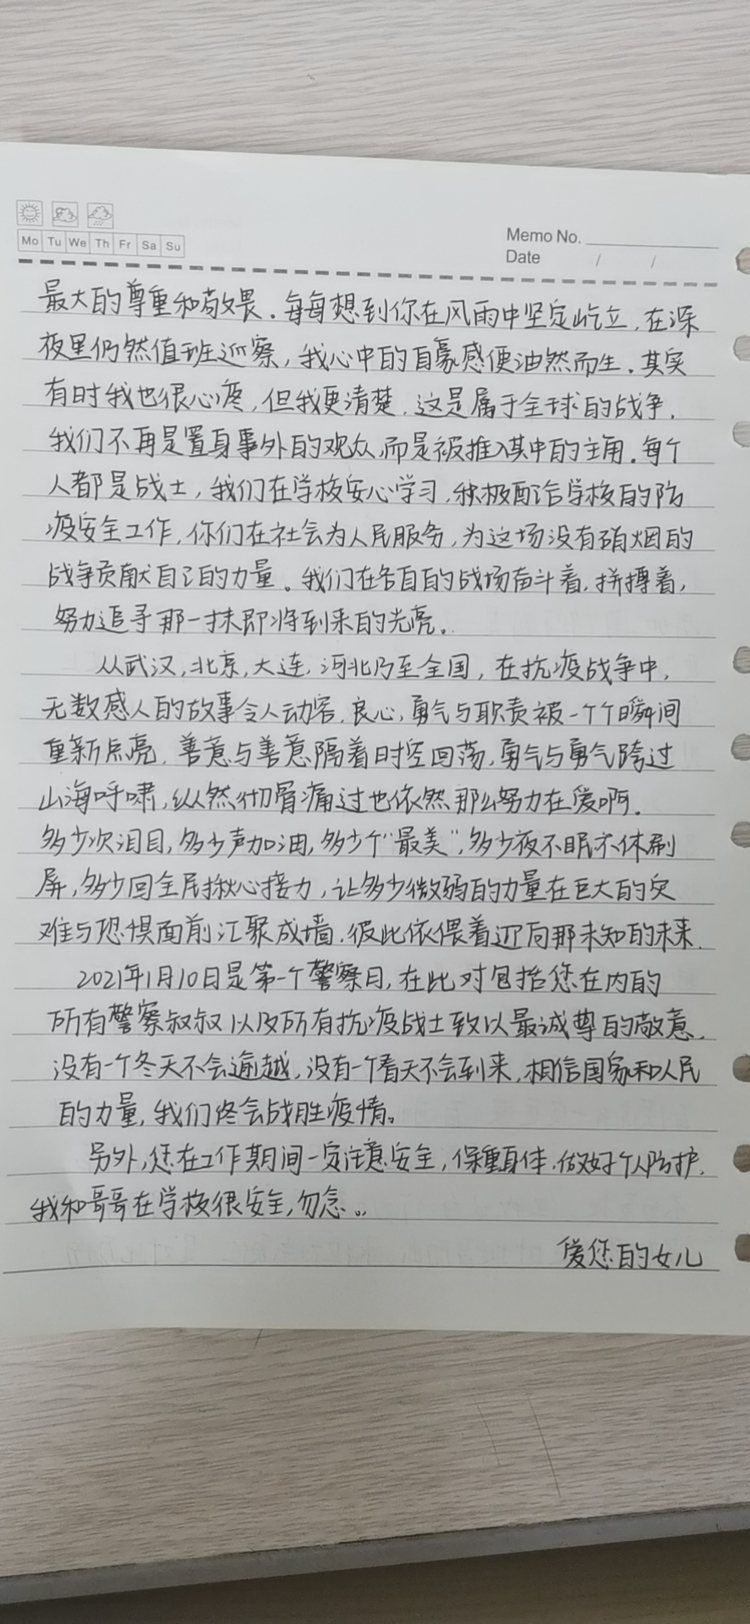 Mo Tu We Th Fr Sa Su
Memo No.
Date / /
最大的尊重和敬畏.每每想到你在风雨中坚定屹立,在深
夜里仍然值班巡察,我心中的自豪感便油然而生.其实
有时我也很心疼,但我更清楚.这是属于全球的战争.
我们不再是置身事外的观众,而是被推入其中的主角.每个
人都是战士,我们在学校安心学习,积极配合学校的防
疫安全工作,你们在社会为人民服务,为这场没有硝烟的
战争贡献自己的力量。我们在各自的战场奋斗着,拼搏着,
努力追寻那一抹即将到来的光亮.
从武汉,北京,大连,河北乃至全国,在抗疫战争中,
无数感人的故事令人动容,良心,勇气与职责被一个个瞬间
重新点亮.善意与善意隔着时空回荡,勇气与勇气跨过
山海呼啸,纵然彻骨痛过也依然那么努力在爱啊.
多少次泪目,多少声加油,多少个"最美",多少夜不眠不休刷
屏,多少回全民揪心接力,让多少微弱的力量在巨大的灾
难与恐惧面前汇聚成墙.彼此依偎着迎向那未知的未来.
2021年1月10日是第一个警察日,在此对包括您在内的
所有警察叔叔以及所有抗疫战士致以最诚尊的敬意.
没有一个冬天不会逾越,没有一个春天不会到来,相信国家和人民
的力量,我们终会战胜疫情。
另外,您在工作期间一定注意安全,保重身体,做好个人防护.
我和哥哥在学校很安全,勿念。
爱您的女儿